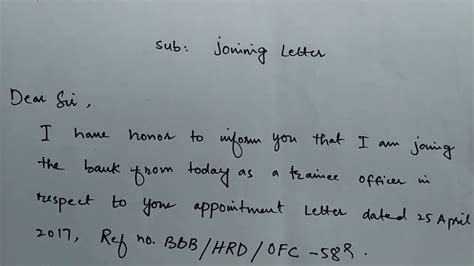 Sub: Joining Letter
Dear Sir,
I have honor to inform you that I am joing
the bank from today as a trainee officer in
respect to your appointment Letter dated 25 April
2017, Ref no. BBB/HRD/OFC -58